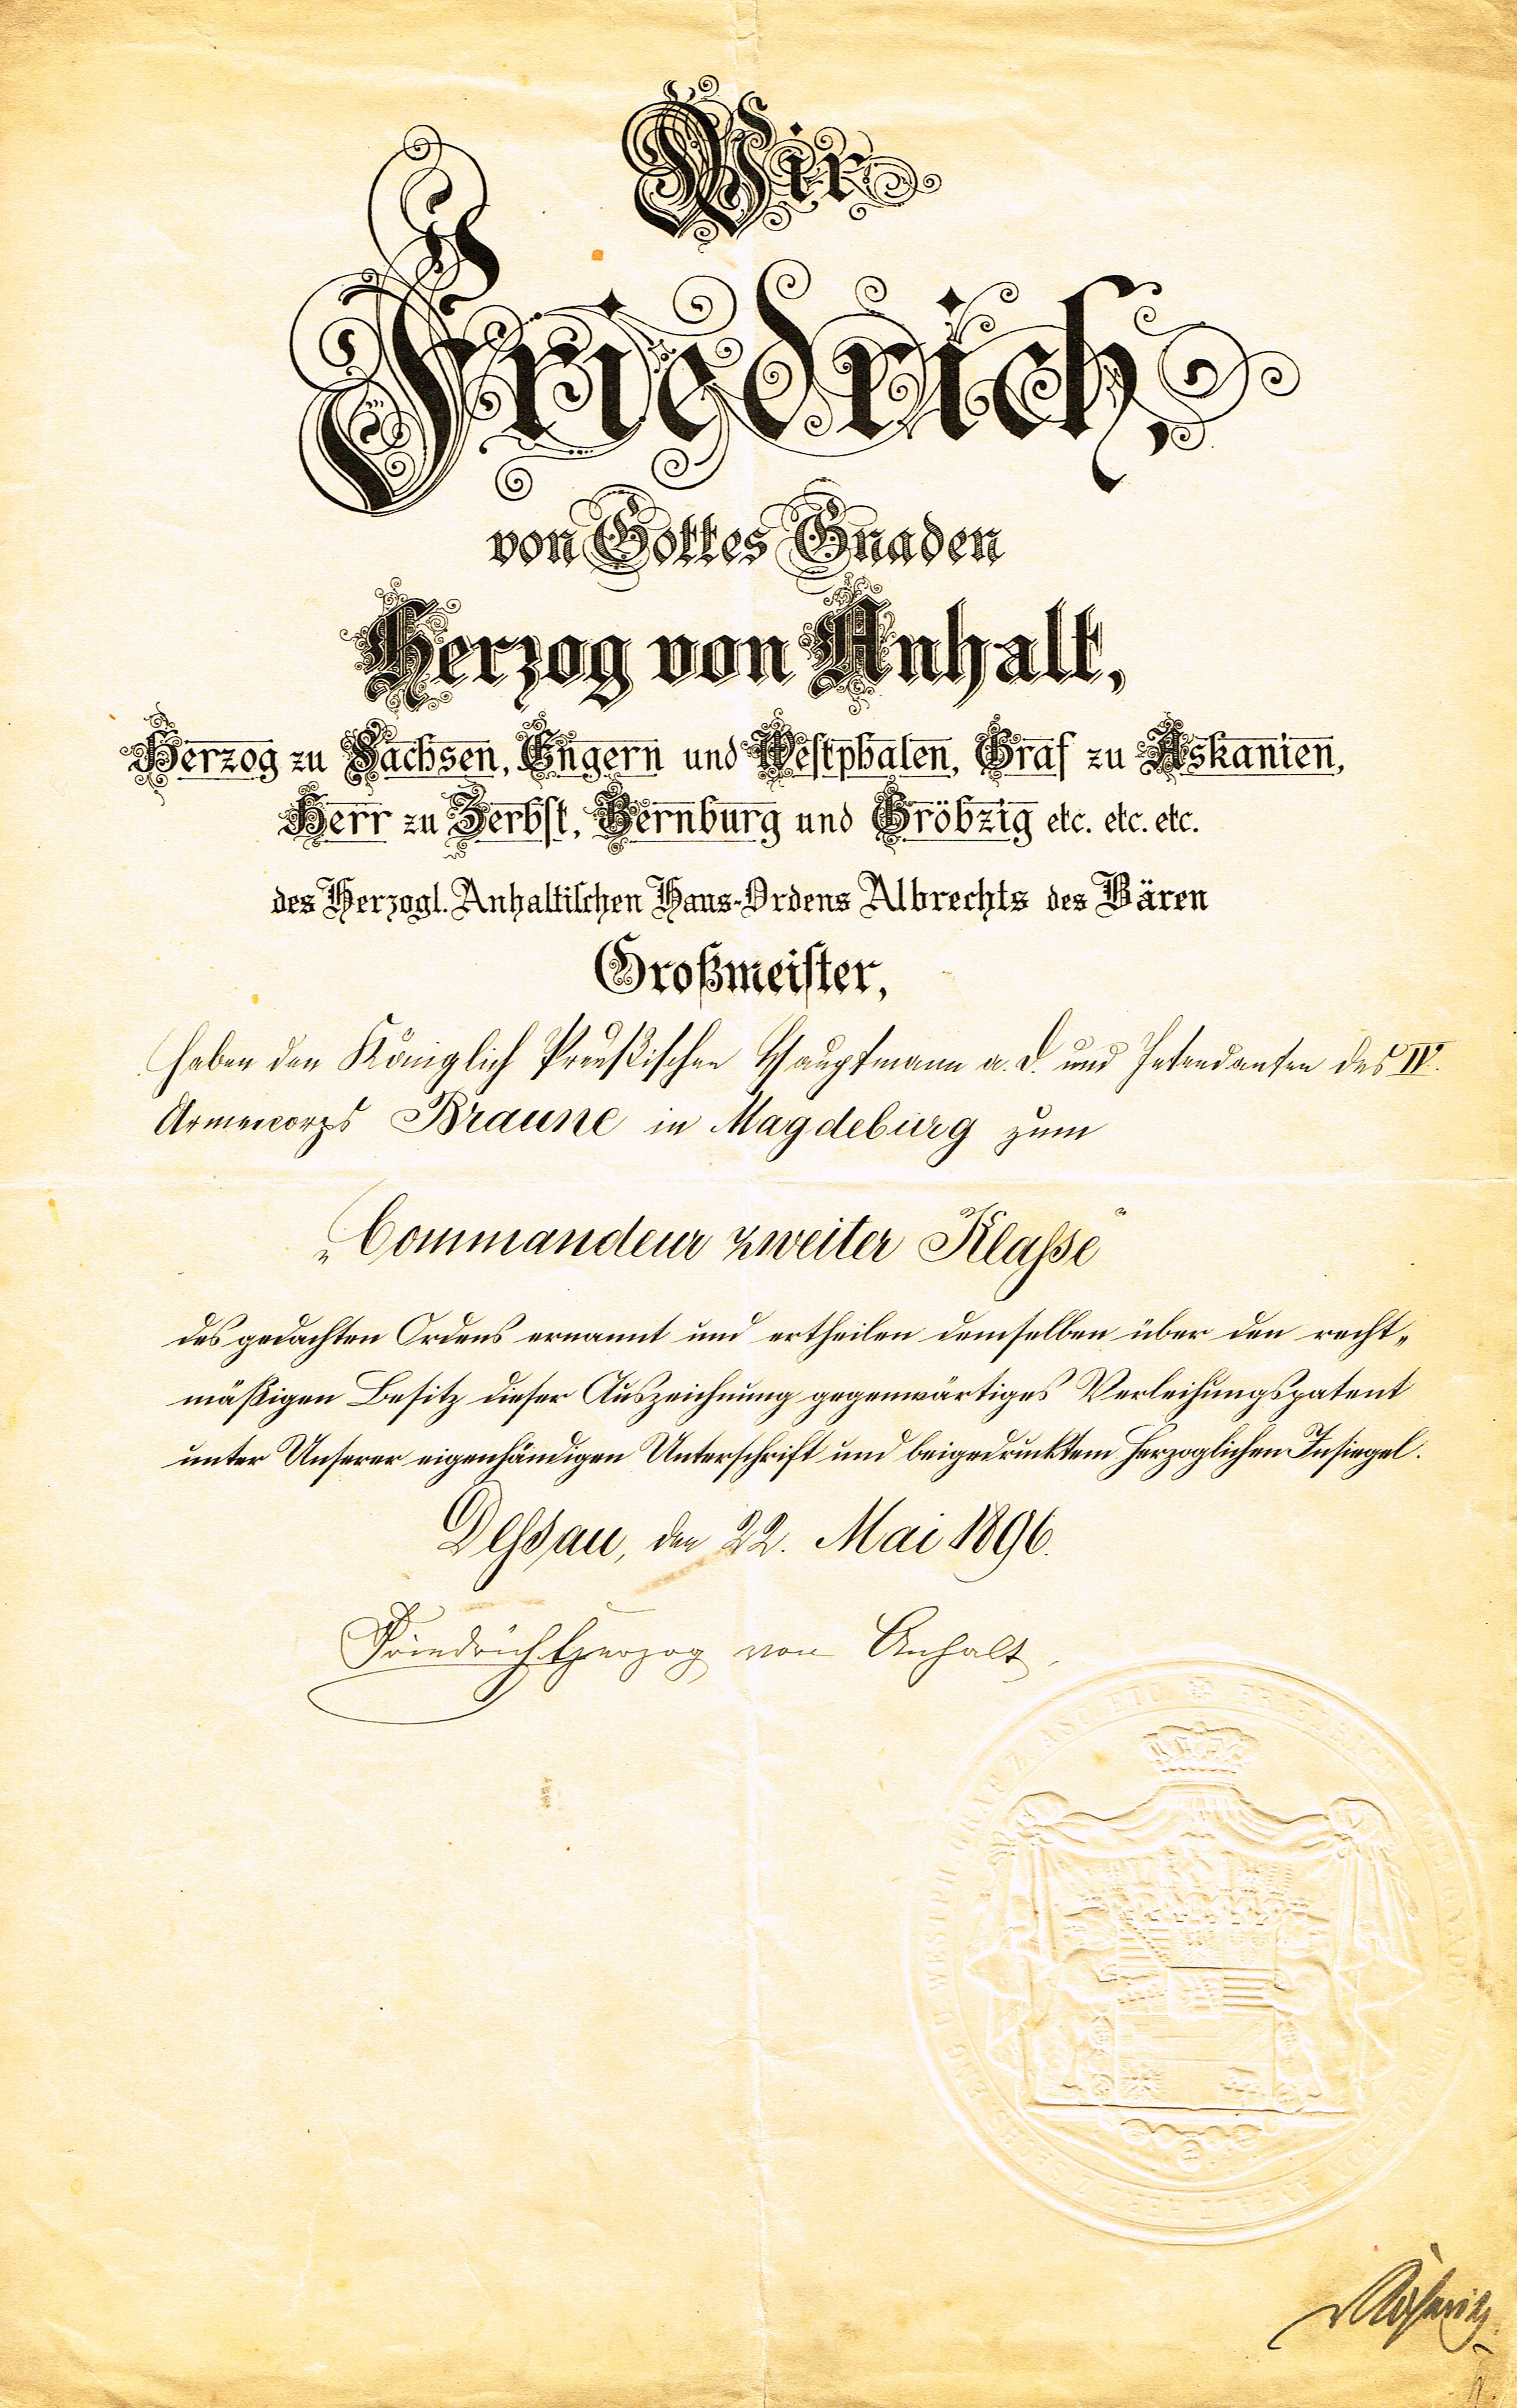 Wir
Friedrich,
von Gottes Gnaden
Herzog von Anhalt,
Herzog zu Sachsen, Engern und Westphalen, Graf zu Askanien,
Herr zu Zerbst, Bernburg und Gröbzig etc. etc. etc.
des Herzogl. Anhaltischen Haus-Ordens Albrechts des Bären
Großmeister,
haben den Königlich Preußischen Hauptmann a. D. und Intendanten des IV.
Armeecorps Braune in Magdeburg zum
„Commandeur zweiter Klasse“
des gedachten Ordens ernannt und ertheilen demselben über den recht-
mäßigen Besitz dieser Auszeichnung gegenwärtiges Verleihungspatent
unter Unserer eigenhändigen Unterschrift und beigedrucktem Herzoglichen Insiegel.
Dessau, den 22. Mai 1896.
Friedrich Herzog von Anhalt.
FRIEDRICH VON GOTT GNADEN HERZOG VON ANHALT HERZ Z SACHS ENG U WESTPH GRAF Z. ASC ETC